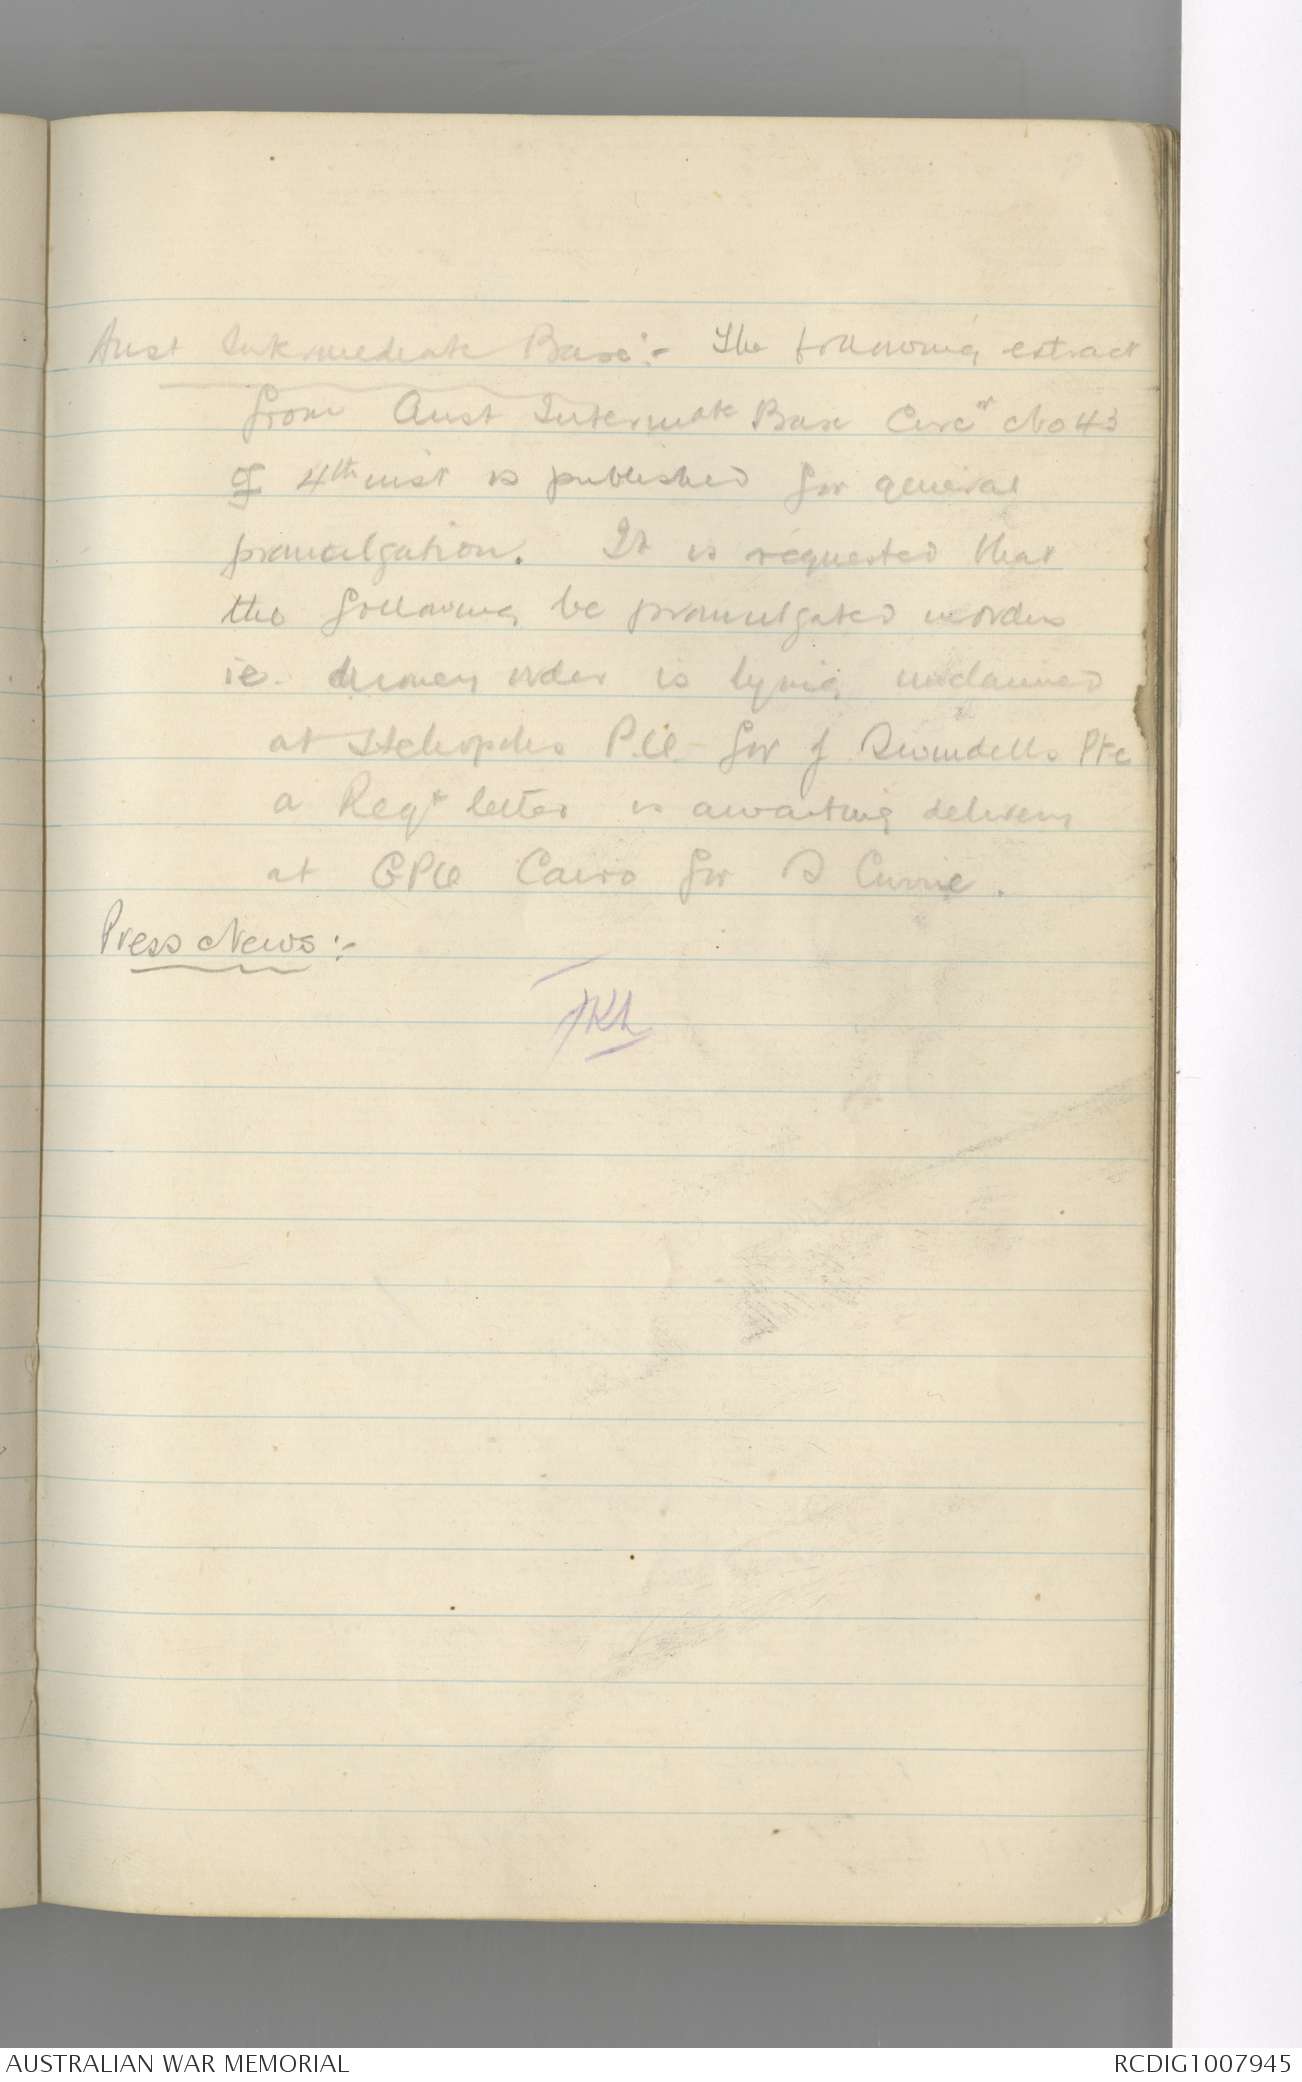 Aust Intermediate Base:- The following extract
from Aust Intermate Base Circr No 43
of 4th inst is published for general
promulgation. It is requested that
the following be promulgated in orders
ie. A money order is lying unclaimed
at Heliopolis P.O. for J Swindells Pte
a Regd letter is awaiting delivery
at GPO Cairo for D Currie.
Press News:-
AUSTRALIAN WAR MEMORIAL
RCDIG1007945